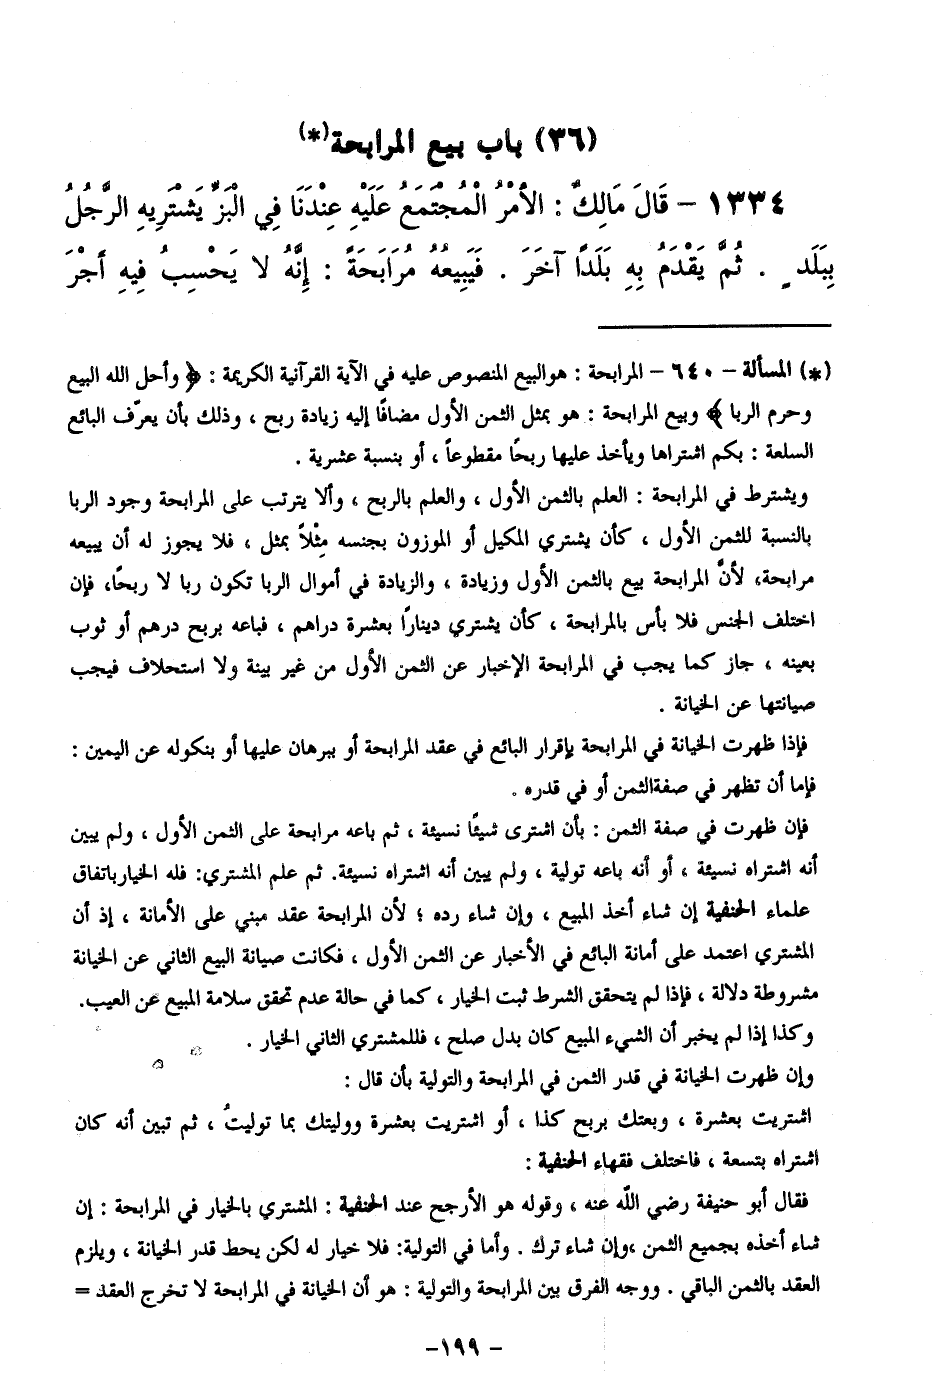 (٣٦) باب بيع المرابحة(*)
١٣٣٤ – قَالَ مَالِكٌ : الأَمْرُ الْمُجْتَمَعُ عَلَيْهِ عِنْدَنَا فِي الْبَزِّ يَشْتَرِيهِ الرَّجُلُ
بِبَلَدٍ . ثُمَّ يَقْدَمُ بِهِ بَلَدًا آخَرَ . فَيَبِيعُهُ مُرَابَحَةً : إِنَّهُ لا يَحْسِبُ فِيهِ أَجْرَ
(*) المسألة – ٦٤٠ – المرابحة : هوالبيع المنصوص عليه في الآية القرآنية الكريمة : ﴿ وأحل الله البيع
وحرم الربا ﴾ وبيع المرابحة : هو بمثل الثمن الأول مضافًا إليه زيادة ربح ، وذلك بأن يعرّف البائع
السلعة : بكم اشتراها ويأخذ عليها ربحًا مقطوعاً ، أو بنسبة عشرية .
ويشترط في المرابحة : العلم بالثمن الأول ، والعلم بالربح ، وألا يترتب على المرابحة وجود الربا
بالنسبة للثمن الأول ، كأن يشتري المكيل أو الموزون بجنسه مِثْلاً بمثل ، فلا يجوز له أن يبيعه
مرابحة، لأنَّ المرابحة بيع بالثمن الأول وزيادة ، والزيادة في أموال الربا تكون ربا لا ربحًا، فإن
اختلف الجنس فلا بأس بالمرابحة ، كأن يشتري دينارًا بعشرة دراهم ، فباعه بربح درهم أو ثوب
بعينه ، جاز كما يجب في المرابحة الإخبار عن الثمن الأول من غير بينة ولا استحلاف فيجب
صيانتها عن الخيانة .
فإذا ظهرت الخيانة في المرابحة بإقرار البائع في عقد المرابحة أو ببرهان عليها أو بنكوله عن اليمين :
فإما أن تظهر في صفةالثمن أو في قدره .
فإن ظهرت في صفة الثمن : بأن اشترى شيئًا نسيئة ، ثم باعه مرابحة على الثمن الأول ، ولم يبين
أنه اشتراه نسيئة ، أو أنه باعه تولية ، ولم يبين أنه اشتراه نسيئة. ثم علم المشتري: فله الخيارباتفاق
علماء الحنفية إن شاء أخذ المبيع ، وإن شاء رده ؛ لأن المرابحة عقد مبني على الأمانة ، إذ أن
المشتري اعتمد على أمانة البائع في الأخبار عن الثمن الأول ، فكانت صيانة البيع الثاني عن الخيانة
مشروطة دلالة ، فإذا لم يتحقق الشرط ثبت الخيار ، كما في حالة عدم تحقق سلامة المبيع عن العيب.
وكذا إذا لم يخبر أن الشيء المبيع كان بدل صلح ، فللمشتري الثاني الخيار .
وإن ظهرت الخيانة في قدر الثمن في المرابحة والتولية بأن قال :
اشتريت بعشرة ، وبعتك بربح كذا ، أو اشتريت بعشرة ووليتك بما توليتُ ، ثم تبين أنه كان
اشتراه بتسعة ، فاختلف فقهاء الحنفية :
فقال أبو حنيفة رضي الله عنه ، وقوله هو الأرجح عند الحنفية : المشتري بالخيار في المرابحة : إن
شاء أخذه بجميع الثمن ،وإن شاء ترك . وأما في التولية: فلا خيار له لكن يحط قدر الخيانة ، ويلزم
العقد بالثمن الباقي . ووجه الفرق بين المرابحة والتولية : هو أن الخيانة في المرابحة لا تخرج العقد =
– ١٩٩–